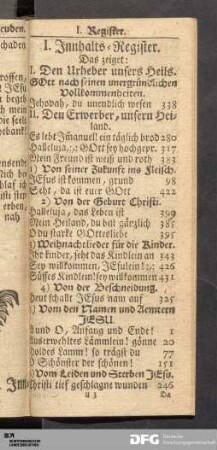 I. Register.
I. Innhalts-Register.
Das zeiget:
I. Den Urheber unsers Heils.
GOtt nach seinen unergründlichen
Vollkommenheiten.
Jehovah, du unendlich wesen 338
II. Den Erwerber, unsern Hei-
land.
Es lebt Immanuel! ein täglich brod 280
Halleluja,:,: GOtt sey hochgepr. 317
Mein Freund ist weiß und roth 383
1) Von seiner Zukunft ins Fleisch.
JEsus ist kommen, grund 98
Seht, da ist euer GOtt 422
2) Von der Geburt Christi.
Halleluja, das Leben ist 399
Mein Heiland, du bist gänzlich 385
O du starke GOttesliebe 395
3) Weihnachtlieder für die Kinder.
Ihr kinder, seht das Kindlein an 343
Sey willkommen, JEsulein!:,: 426
Süsses Kindlein! sey willkommen 431
4) Von der Beschneidung.
Heut schallt JEsus nam auf 325
5) Vom den Namen und Aemtern
JESU.
A und O, Anfang und Ende! 1
Auserwehltes Lämmlein! gönne 20
Holdes Lamm! so trägst du 77
O Schönster der schönen! 151
Vom Leiden und Sterben JEsu.
Christi tief geschlagne wunden 246
u 3
Da
euden.
chaden
roffen,
Send
DFG
Deutsche
Forschungsgemeinschaft